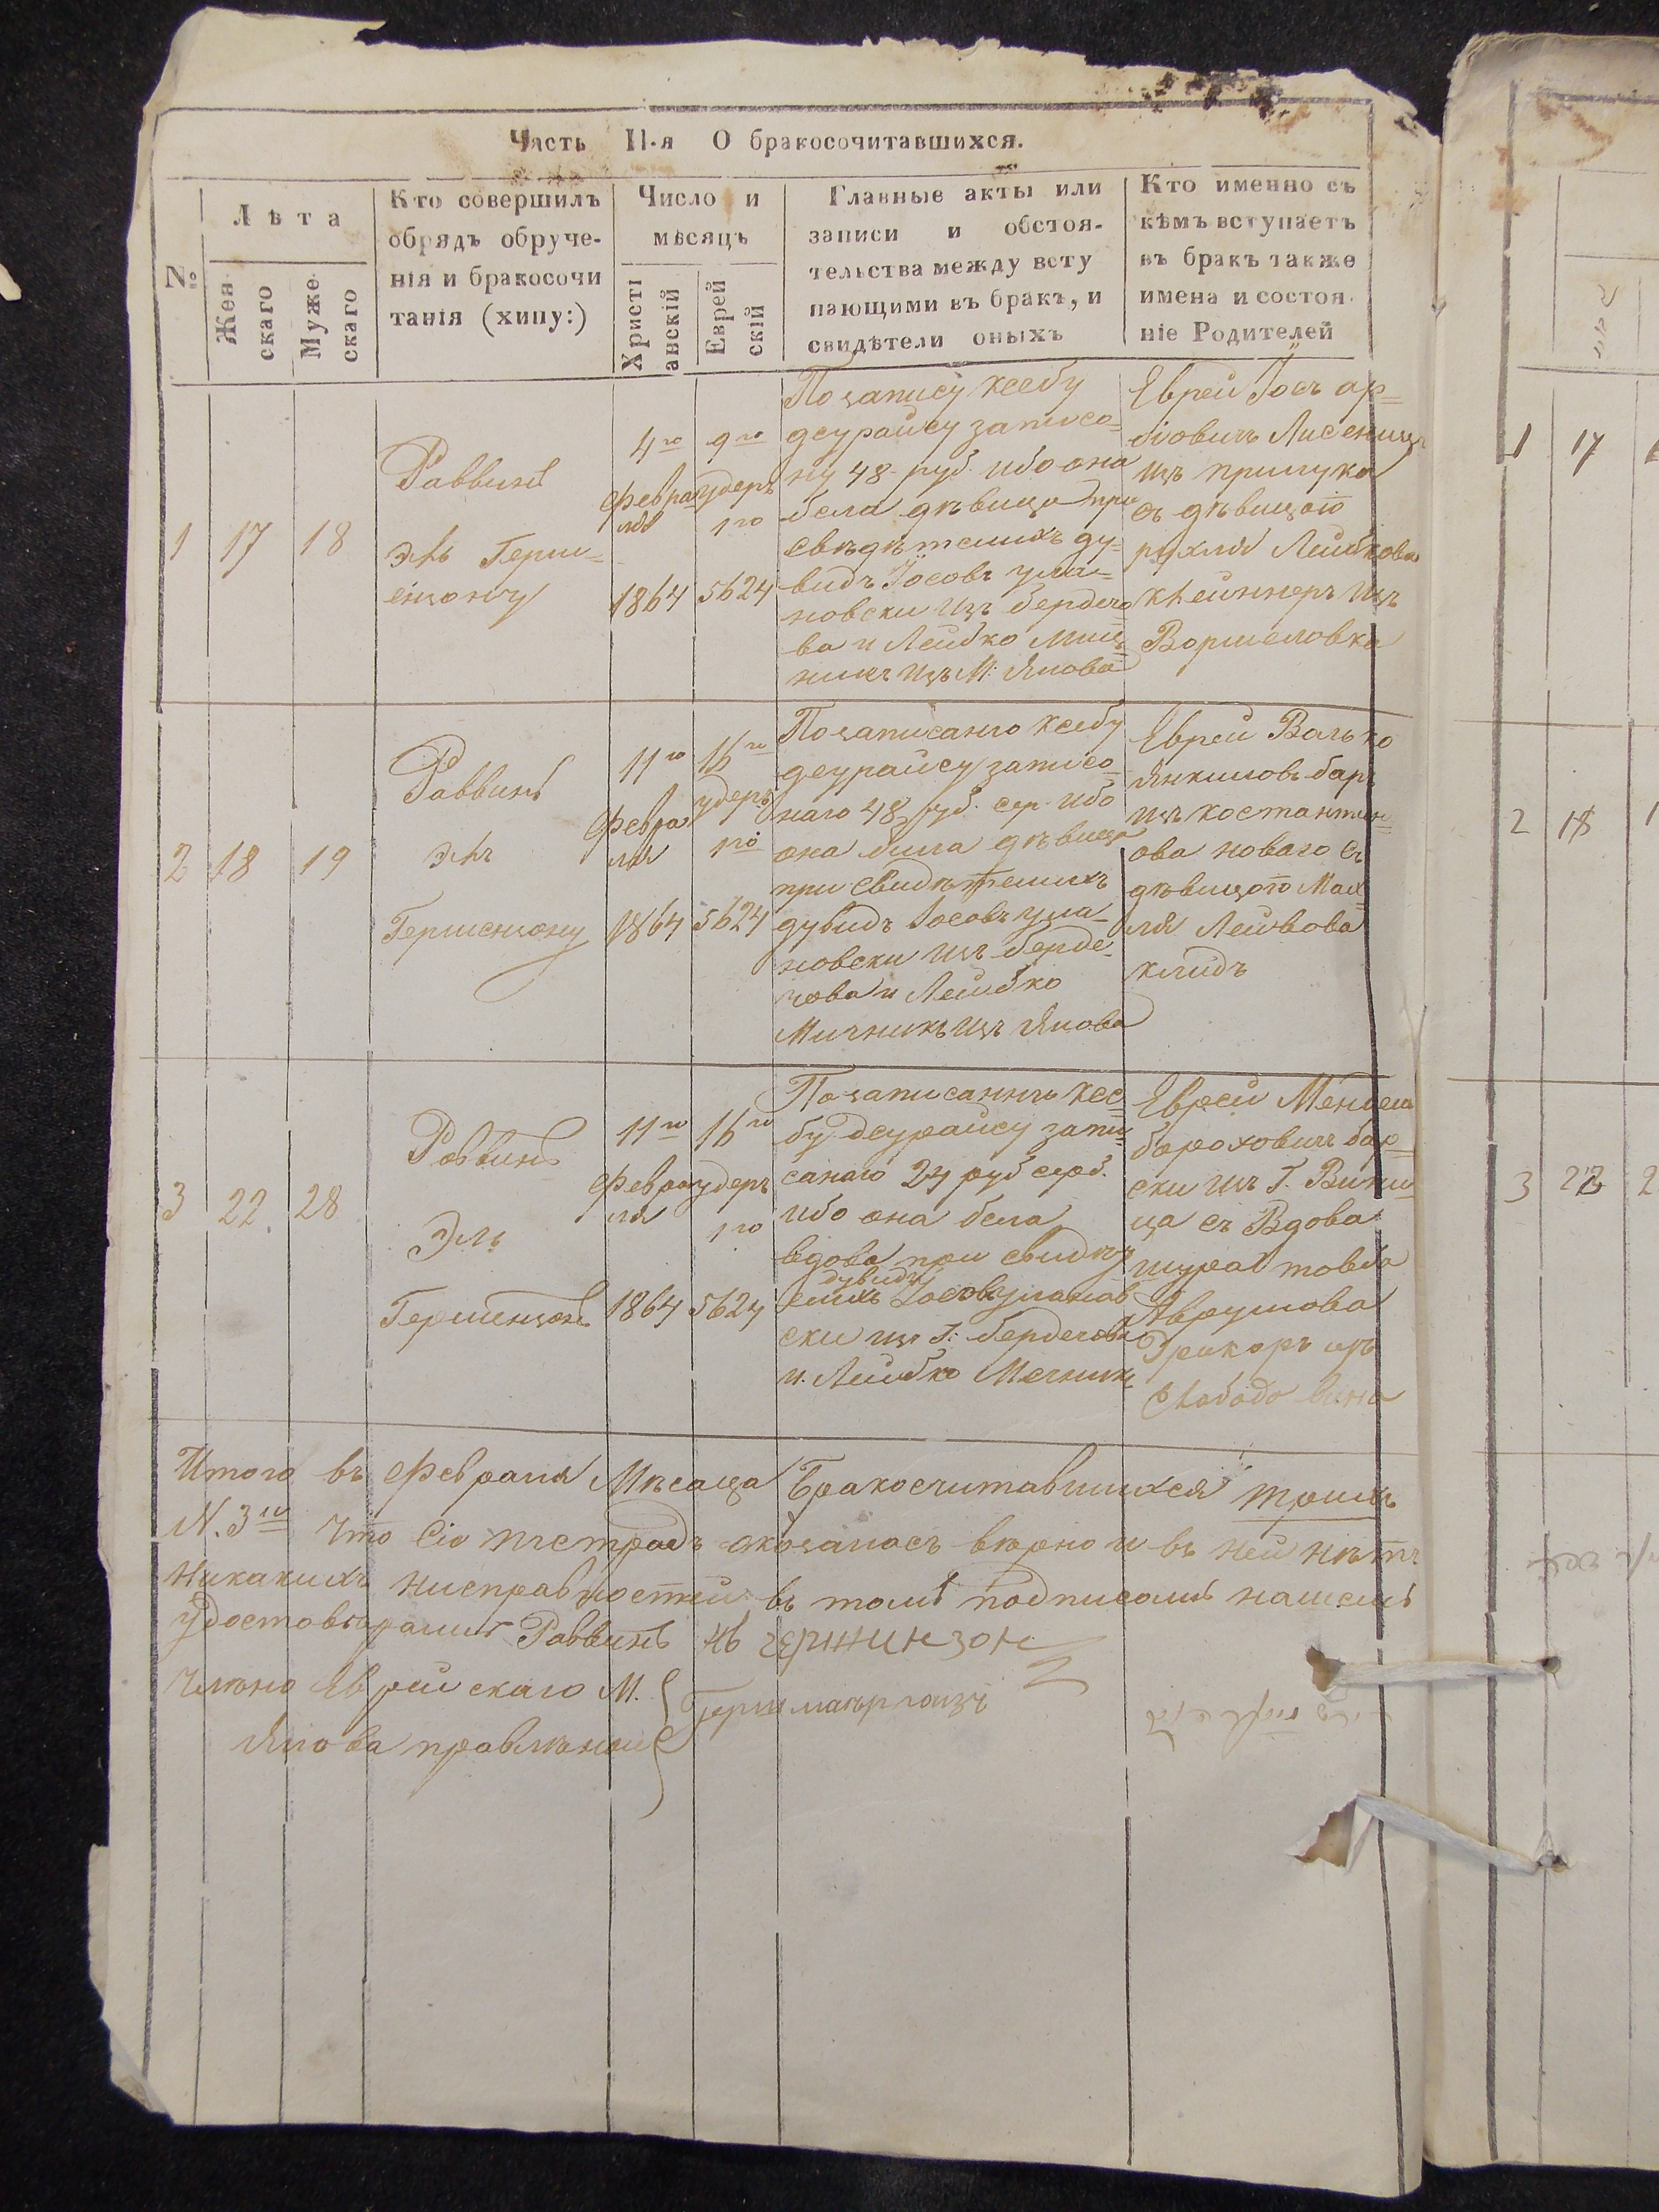 Часть II-я О бракосочитавшихся.
№
Лѣта
Женскаго
Мужескаго
Кто совершилъ
обрядъ обруче-
нія и бракосочи
танія (хипу:)
Число и
мѣсяцъ
Христіанскій
Еврейскій
Главные акты или
записи и обстоя-
тельства между всту
пающими въ бракъ, и
свидѣтели оныхъ
Кто именно съ
кѣмъ вступаетъ
въ бракъ также
имена и состоя-
ніе Родителей
1
17
18
Раввинъ
Эль Герш-
енцону
4го
Февра
ля
1864
9го
удеръ
1го
5624
По запису ксебу
деурайсу записо-
ну 48 руб. ибо она
бела дѣвица при
свѣдѣтелихъ ду-
видъ Іосовъ ула-
новски изъ бердечо
ва и Лейбко Мич-
никъ изъ М: Янова
Еврей Іосъ ар-
біовичъ Лисеница
изъ прилука
съ дѣвицою
рухля Лейбкова
клейннеръ изъ
Воршеловка
2
18
19
Раввинъ
Эль
Гершенцону
11го
Февра
ля
1864
16го
удеръ
1го
5624
По записанго ксебу
деурайсу записо-
наго 48 руб. сер. ибо
она била дѣвица
при свидѣтелихъ
дубидъ Іосовъ ула-
новски изъ берде-
чова и Лейбко
Мичникъ изъ Янова
Еврей Волько
Янкиловъ баръ
изъ костантин-
ова новаго съ
дѣвицою Мал-
ля Лейвова
клидъ
3
22
28
Раввинъ
Эль
Гершенцонъ
11го
Февра
ля
1864
16го
удеръ
1го
5624
По записаннъ ксе-
бу деурайсу запи-
санаго 24 руб сереб.
ибо она бела
вдова при свидѣт
дувидъ
елихъ Іосовъ уланов
ски изъ Г: бердечова
и Лейбко Мечникъ
Еврей Мендель
бороховичъ бар-
ски изъ Г. Вини-
ца съ Вдова
шура товба
Аврумова
Грикоръ изъ
Слабодо
Итого въ Февраля Мѣсаца Бракосчитавшихся трихъ
N. 3го что сіо тетрадъ оказалосъ вѣрно и въ ней нѣтъ
Никакихъ нисправностей въ томъ подписомъ нашемъ
удостовѣраимъ Раввинъ Эль гершинзон
Члѣно Еврейскаго М.
Янова правлѣнои
Герш маргоизъ
1 17
2 18
3 22 2